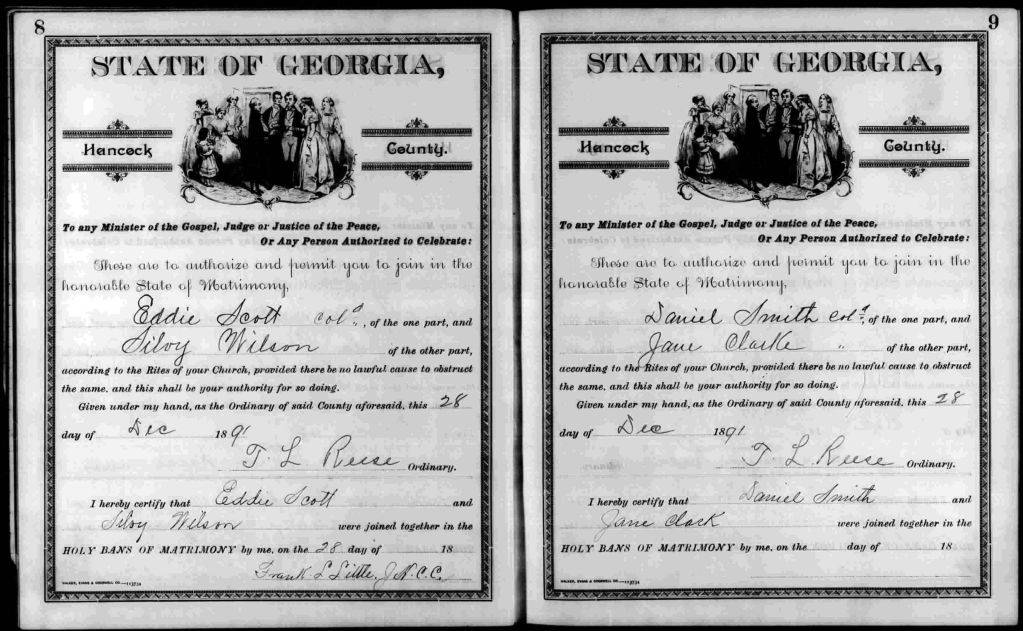 8
STATE OF GEORGIA,
Hancock County.
To any Minister of the Gospel, Judge or Justice of the Peace,
Or Any Person Authorized to Celebrate:
These are to authorize and permit you to join in the
honorable State of Matrimony,
Eddie Scott cold., of the one part, and
Silvy Wilson of the other part,
according to the Rites of your Church, provided there be no lawful cause to obstruct
the same, and this shall be your authority for so doing.
Given under my hand, as the Ordinary of said County aforesaid, this 28
day of Dec 1891
T. L Reese Ordinary.
I hereby certify that Eddie Scott and
Silvy Wilson were joined together in the
HOLY BANS OF MATRIMONY by me, on the 28 day of 18
Frank L Little, J.N.C.C.
WALKER, EVANS & COGSWELL CO.—113734
9
STATE OF GEORGIA,
Hancock County.
To any Minister of the Gospel, Judge or Justice of the Peace,
Or Any Person Authorized to Celebrate:
These are to authorize and permit you to join in the
honorable State of Matrimony,
Daniel Smith cold, of the one part, and
Jane Clarke " of the other part,
according to the Rites of your Church, provided there be no lawful cause to obstruct
the same, and this shall be your authority for so doing.
Given under my hand, as the Ordinary of said County aforesaid, this 28
day of Dec 1891.
T L Reese Ordinary.
I hereby certify that Daniel Smith and
Jane Clark were joined together in the
HOLY BANS OF MATRIMONY by me, on the day of 18
WALKER, EVANS & COGSWELL CO.—113734